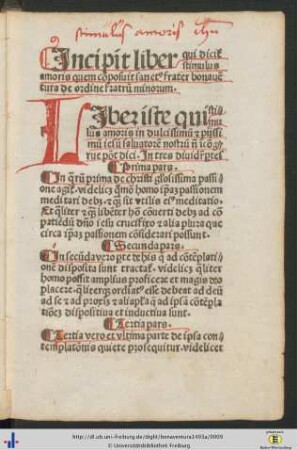 stimulus amoris
Incipit liber qui dicit̃
stimulus
amoris quem cōposuit sanct⁹ frater bonauē
tura de ordine fratrū minorum.
Liber iste qui sti
mu
lus amoris in dulcissimū ⁊ pijssi
mū iesū saluatorē nostrū nō icōg
rue pōt dici. In tres diuidit̃ ꝑtes
Prima pars.
In q̄rū prima de christi gl'osissima passi
one agit̃. videlicꝫ qūo homo ip̄aꝫ passionem
meditari debꝫ. ⁊ q̄ sit vtilis ei⁹ meditatio.
Et q̄liter ⁊ q̄ liben̄t hō cōuerti debꝫ ad cō
patiēdū dn̄o iesu crucifixo ⁊ alia plura que
circa ip̄aꝫ passionem cōsiderari possunt.
Secunda pars.
In secūda vero ꝑte de his q̄ ad cōtēplati
onē disposita sunt tractat̃. videlicꝫ q̄liter
homo possit amplius proficere et magis deo
placere. q̄literqꝫ ordiat⁹ esse debeat ad deū
ad se ⁊ ad proxīꝫ ⁊ alia plia q̄ ad ip̄sā cōtēpla
tiōeꝫ dispositiua et inductiua sunt.
Tertia pars.
Tertia vero et vltima parte de ip̄sa con
templatōnis quiete prosequitur. videlicet
http://dl.ub.uni-freiburg.de/diglit/bonaventura1493a/0009
© Universitätsbibliothek Freiburg